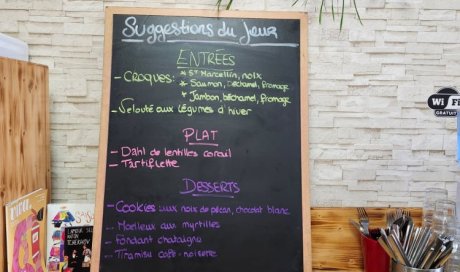 Suggestions du Jour
ENTRÉES
- Croques: * St Marcellin, noix
* Saumon, Béchamel, fromage
* Jambon, béchamel, fromage
- Velouté aux légumes d'hiver
PLAT
- Dahl de lentilles corail
- Tartiflette
DESSERTS
- Cookies aux noix de pécan, chocolat blanc
- Moelleux aux myrtilles
- Fondant chataigne
- Tiramisu café-noisette
Wi Fi
GRATUIT